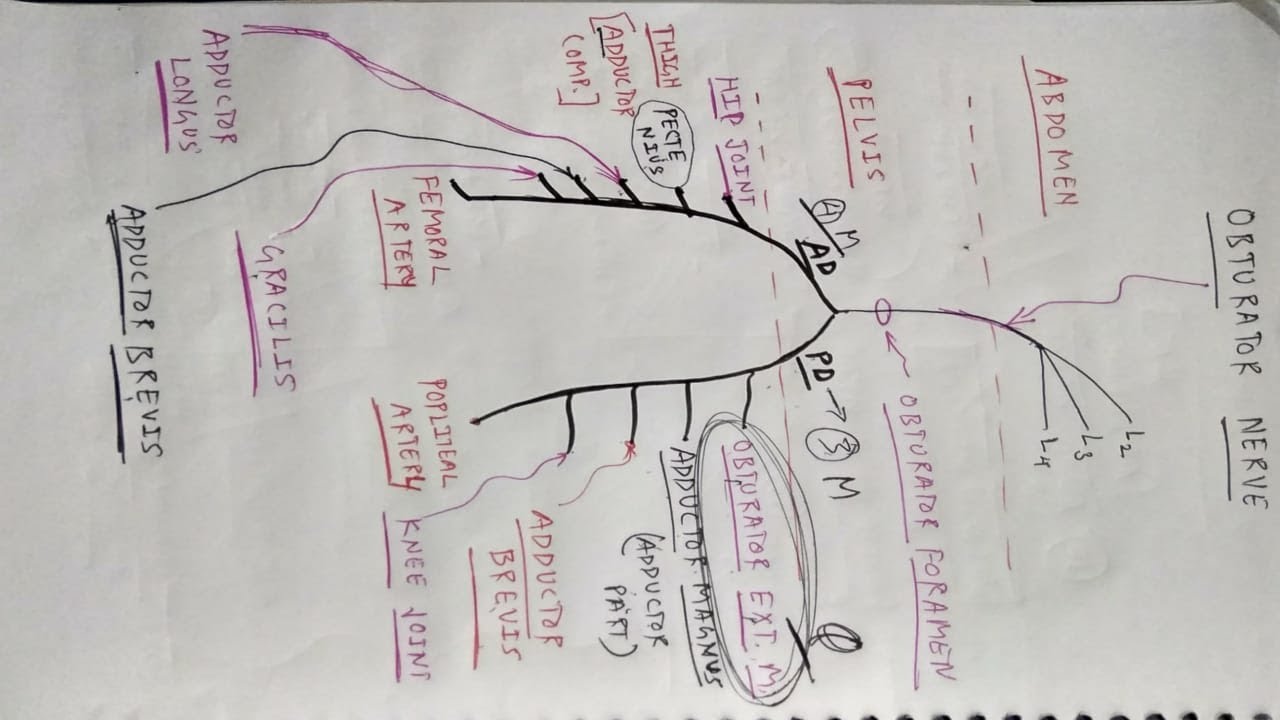 OBTURATOR NERVE
L2
L3
L4
ABDOMEN
OBTURATOR FORAMEN
PELVIS
4 M
AD
PD → 3 M
HIP JOINT
OBTURATOR EXT. M
THIGH
[ADDUCTOR
COMP.]
PECTE
NIUS
ADDUCTOR MAGNUS
(ADDUCTOR
PART)
ADDUCTOR
BREVIS
FEMORAL
ARTERY
POPLITEAL
ARTERY
KNEE JOINT
ADDUCTOR
LONGUS
GRACILIS
ADDUCTOR BREVIS